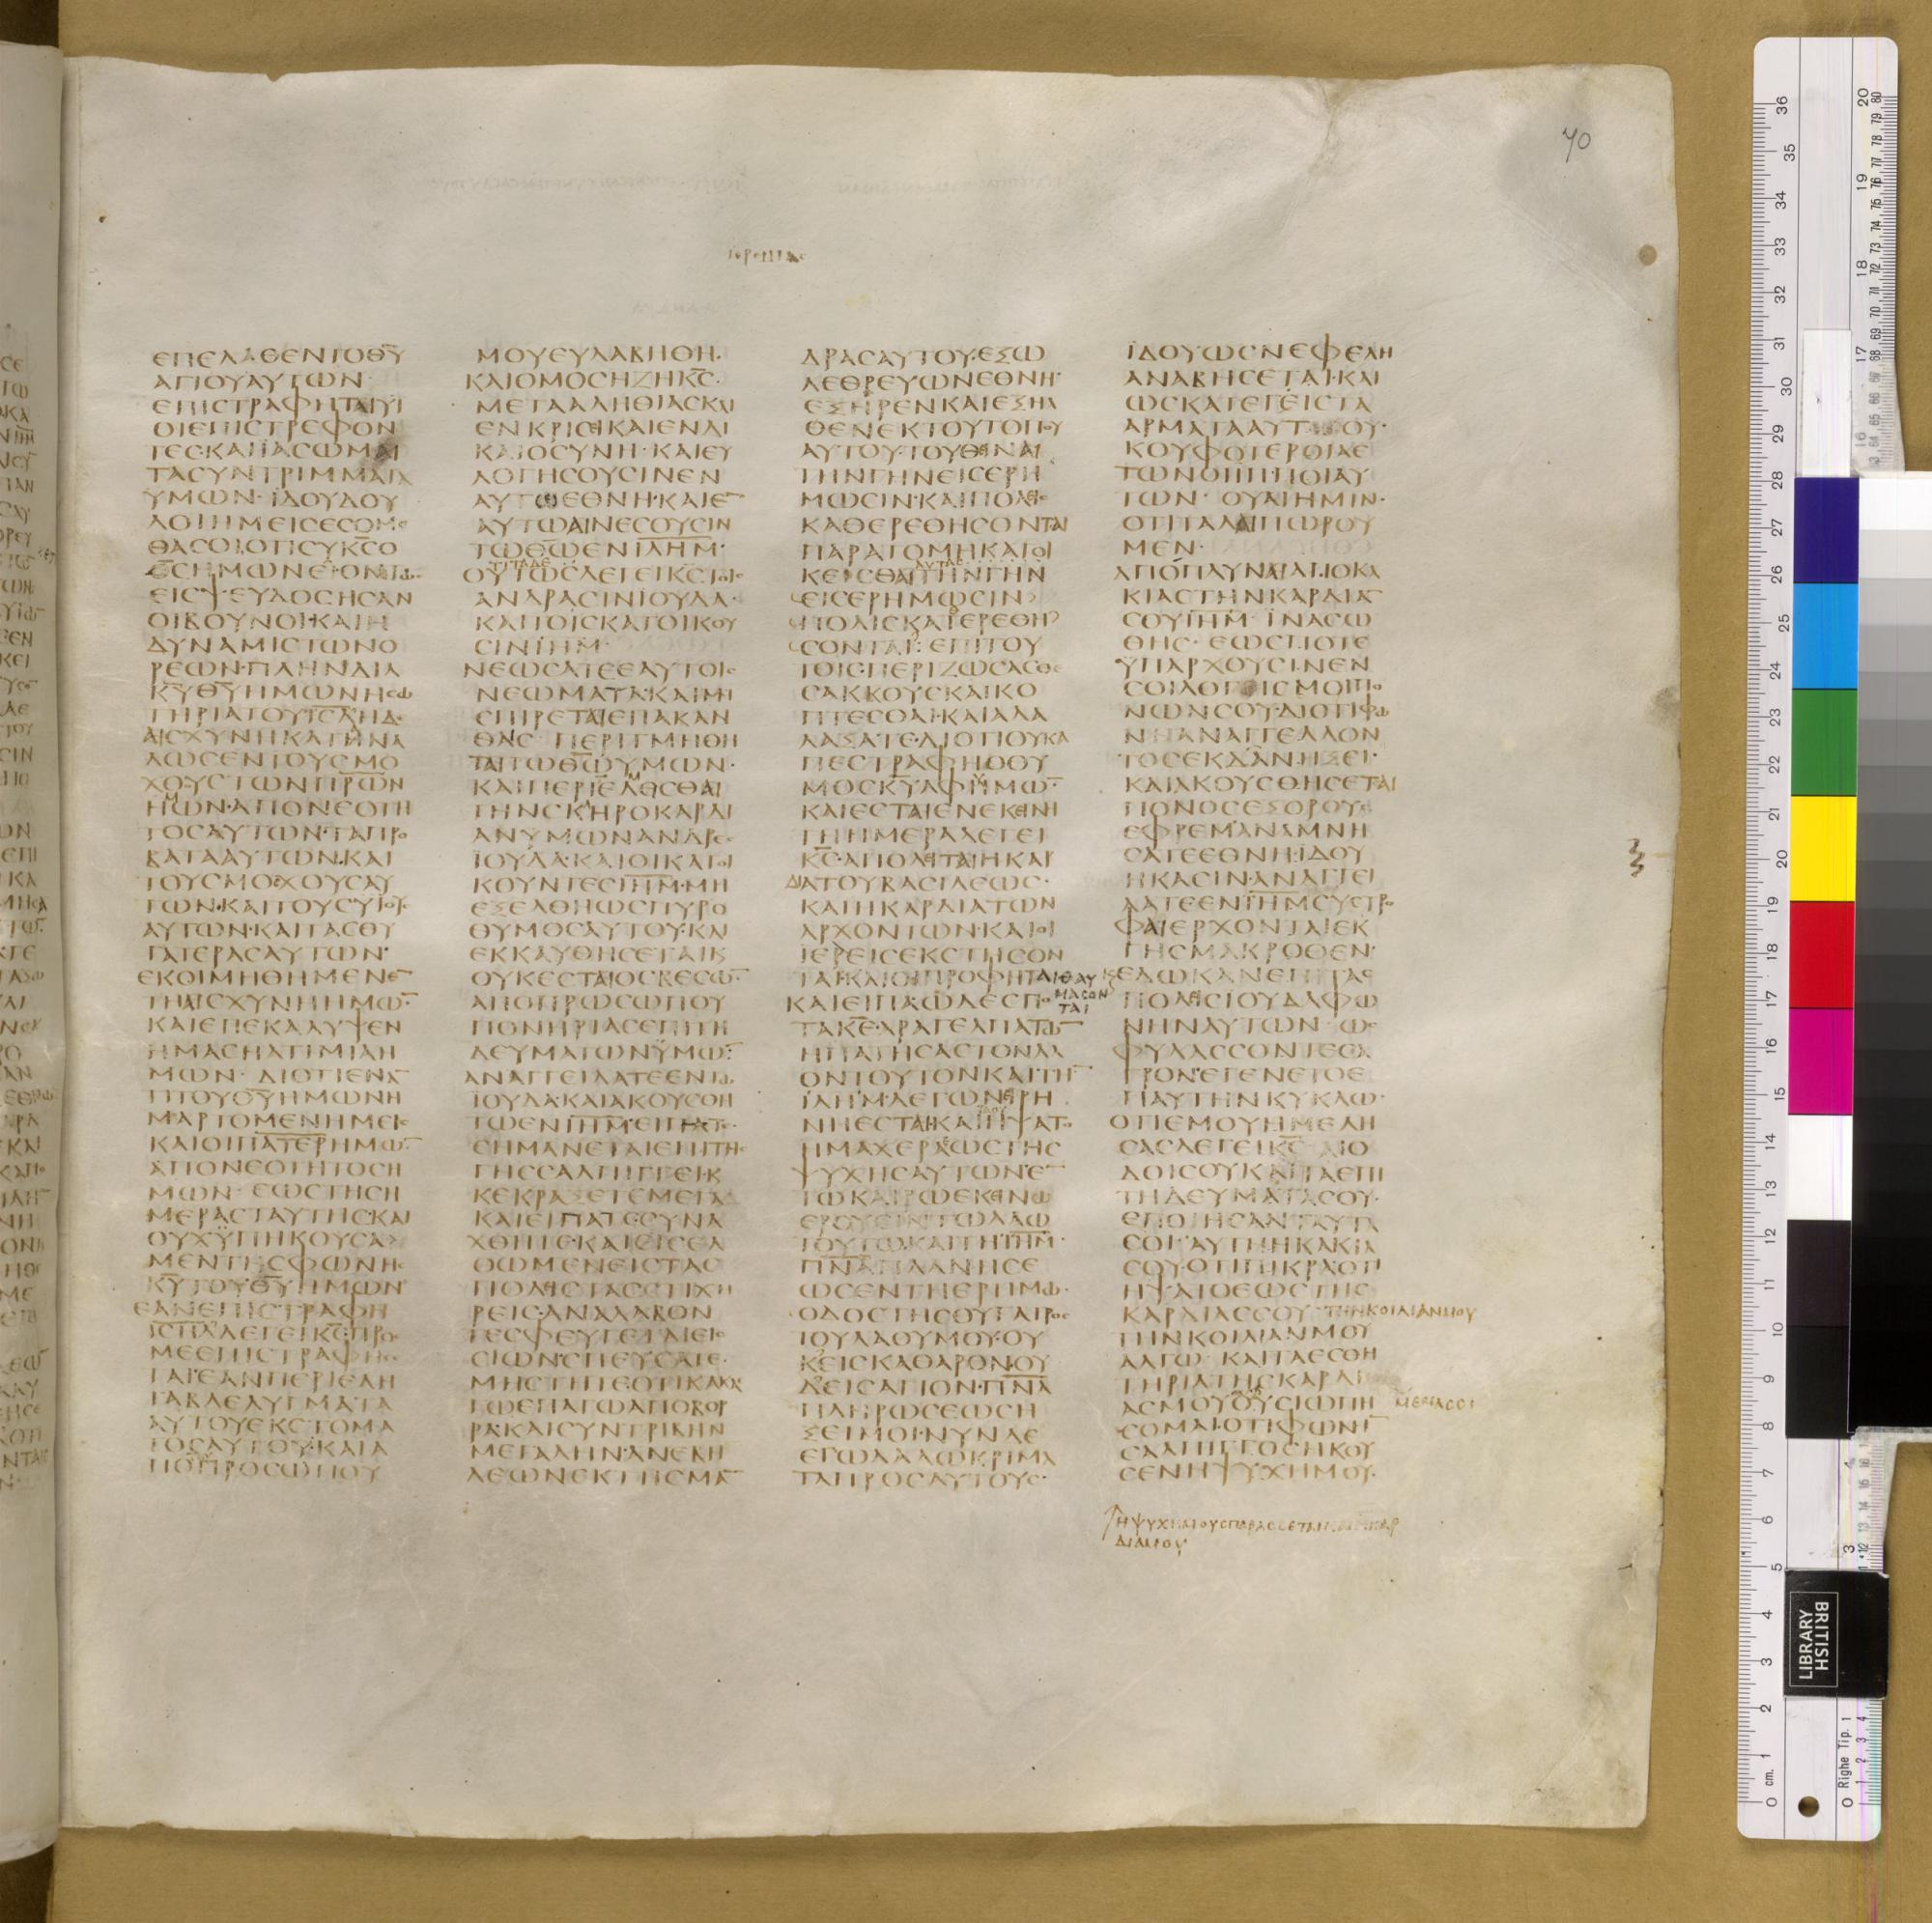 ιερεμιας
70
ΕΠΕΛΑΘΕΝΤΟΘΥ
ΑΓΙΟΥΑΥΤΩΝ·
ΕΠΙCΤΡΑΦΗΤΑΙΥΙ
ΟΙΕΠΙCΤΡΕΦΟΝ
ΤΕC·ΚΑΙΙΑCΩΜΑΙ
ΤΑCΥΝΤΡΙΜΜΑΤΑ
ΥΜΩΝ·ΙΔΟΥΔΟΥ
ΛΟΙΗΜΕΙCΕCΟΜΕ
ΘΑCΟΙΟΤΙCΥΚCΟ
ΘCΗΜΩΝΕΙ·ΟΝΤΩC
ΕΙCΨΕΥΔΟCΗCΑΝ
ΟΙΒΟΥΝΟΙ·ΚΑΙΗ
ΔΥΝΑΜΙCΤΩΝΟ
ΡΕΩΝ·ΠΛΗΝΔΙΑ
ΚΥΘΥΗΜΩΝΗCΩ
ΤΗΡΙΑΤΟΥΙCΑΗΛ·
ΑΙCΧΥΝΗΚΑΤΗΝΑ
ΛΩCΕΝΤΟΥCΜΟ
ΧΟΥCΤΩΝΠΡΩΝ
ΗΜΩΝ·ΑΠΟΝΕΟΤΗ
ΤΟCΑΥΤΩΝ·ΤΑΠΡΟ
ΒΑΤΑΑΥΤΩΝ·ΚΑΙ
ΤΟΥCΜΟCΧΟΥCΑΥ
ΤΩΝ·ΚΑΙΤΟΥCΥΙΟΥC
ΑΥΤΩΝ·ΚΑΙΤΑCΘΥ
ΓΑΤΕΡΑCΑΥΤΩΝ·
ΕΚΟΙΜΗΘΗΜΕΝΕΝ
ΤΗΑΙCΧΥΝΗΗΜΩΝ·
ΚΑΙΕΠΕΚΑΛΥΨΕΝ
ΗΜΑCΗΑΤΙΜΙΑΗ
ΜΩΝ·ΔΙΟΤΙΕΝΑΝ
ΤΙΤΟΥΘΥΗΜΩΝΗ
ΜΑΡΤΟΜΕΝΗΜΕΙC
ΚΑΙΟΙΠΑΤΕΡΗΜΩΝ
ΑΠΟΝΕΟΤΗΤΟCΗ
ΜΩΝ·ΕΩCΤΗCΗ
ΜΕΡΑCΤΑΥΤΗC·ΚΑΙ
ΟΥΧΥΠΗΚΟΥCΑ
ΜΕΝΤΗCΦΩΝΗC
ΚΥΤΟΥΘΥΗΜΩΝ
ΕΑΝΕΠΙCΤΡΑΦΗ
ΙCΗΛΛΕΓΕΙΚCΠΡΟC
ΜΕΕΠΙCΤΡΑΦΗC
ΤΑΙ·ΕΑΝΠΕΡΙΕΛΗ
ΤΑΒΔΕΛΥΓΜΑΤΑ
ΑΥΤΟΥΕΚCΤΟΜΑ
ΤΟCΑΥΤΟΥ·ΚΑΙΑ
ΠΟΠΡΟCΩΠΟΥ
ΜΟΥΕΥΛΑΒΗΘΗ·
ΚΑΙΟΜΟCΗΖΗΚC·
ΜΕΤΑΑΛΗΘΙΑCΚΑΙ
ΕΝΚΡΙCΕΙΚΑΙΕΝΔΙ
ΚΑΙΟCΥΝΗ·ΚΑΙΕΥ
ΛΟΓΗCΟΥCΙΝΕΝ
ΑΥΤΩΕΘΝΗ·ΚΑΙΕΝ
ΑΥΤΩΑΙΝΕCΟΥCΙΝ
ΤΩΘΩΕΝΙΛΗΜ·
ΟΤΙΤΑΔΕ
ΟΥΤΩCΛΕΓΕΙΚCΤΟΙC
ΑΝΔΡΑCΙΝΙΟΥΔΑ·
ΚΑΙΤΟΙCΚΑΤΟΙΚΟΥ
CΙΝΙΗΜ·
ΝΕΩCΑΤΕΕΑΥΤΟΙC
ΝΕΩΜΑΤΑ·ΚΑΙΜΗ
CΠΙΡΕΤΑΙΕΠΑΚΑΝ
ΘΑΙC·ΠΕΡΙΤΜΗΘΗ
ΤΑΙΤΩΘΩΥΜΩΝ·
ΚΑΙΠΕΡΙΕΛΕCΘΑΙ
ΤΗΝCΚΛΗΡΟΚΑΡΔΙ
ΑΝΥΜΩΝΑΝΔΡΕC
ΙΟΥΔΑ·ΚΑΙΟΙΚΑΤΟΙ
ΚΟΥΝΤΕCΙΗΜ·ΜΗ
ΕΞΕΛΘΗΩCΠΥΡΟ
ΘΥΜΟCΑΥΤΟΥ·ΚΑΙ
ΕΚΚΑΥΘΗCΕΤΑΙΚ
ΟΥΚΕCΤΑΙΟCΒΕCΩΝ
ΑΠΟΠΡΩCΩΠΟΥ
ΠΟΝΗΡΙΑCΕΠΙΤΗ
ΔΕΥΜΑΤΩΝΥΜΩΝ
ΑΝΑΓΓΕΙΛΑΤΕΕΝΤΩ
ΙΟΥΔΑ·ΚΑΙΑΚΟΥCΘΗ
ΤΩΕΝΙΗΜ·ΕΙΠΑΤΕ
CΗΜΑΝΕΤΑΙΕΠΙΤΗC
ΓΗCCΑΛΠΙΓΓΕΙ·Κ
ΚΕΚΡΑΞΕΤΕΜΕΓΑ
ΚΑΙΕΙΠΑΤΕCΥΝΑ
ΧΘΗΤΕ·ΚΑΙΕΙCΕΛ
ΘΩΜΕΝΕΙCΤΑC
ΠΟΛΕΙCΤΑCCΤΙΧΗ
ΡΕΙC·ΑΝΑΛΑΒΟΝ
ΤΕCΦΕΥΓΕΤΑΙΕΙC
CΙΩΝ·CΠΕΥCΑΤΕ
ΜΗCΤΗΤΕΟΤΙΚΑΚΑ
ΕΓΩΕΠΑΓΩΑΠΟΒΟΡ
ΡΑ·ΚΑΙCΥΝΤΡΙΒΗΝ
ΜΕΓΑΛΗΝ·ΑΝΕΒΗ
ΛΕΩΝΕΚΤΗCΜΑΝ
ΔΡΑCΑΥΤΟΥ·ΕΞΩ
ΛΕΘΡΕΥΩΝΕΘΝΗ·
ΕΞΗΡΕΝΚΑΙΕΞΗΛ
ΘΕΝΕΚΤΟΥΤΟΠΟΥ
ΑΥΤΟΥ·ΤΟΥΘΕΙΝΑΙ
ΤΗΝΓΗΝΕΙCΕΡΗ
ΜΩCΙΝ·ΚΑΙΠΟΛΕΙC
ΚΑΘΕΡΕΘΗCΟΝΤΑΙ
ΠΑΡΑΤΟΜΗΚΑΤΟΙ
ΚΕΙCΘΑΙΤΗΝΓΗΝ
ΕΙCΕΡΗΜΩCΙΝ
ΠΟΛΙCΚΑΤΕΡΕΘΗ
CΟΝΤΑΙ·ΕΠΙΤΟΥ
ΤΟΙCΠΕΡΙΖΩCΑCΘΕ
CΑΚΚΟΥCΚΑΙΚΟ
ΠΤΕCΘΑΙ·ΚΑΙΑΛΑ
ΛΑΞΑΤΕ·ΔΙΟΤΙΟΥΚΑ
ΠΕCΤΡΑΦΗΘΟΥ
ΜΟCΚΥΑΦΗΜΩΝ·
ΚΑΙΕCΤΑΙΕΝΕΚΕΙΝΗ
ΤΗΗΜΕΡΑΛΕΓΕΙ
ΚCΑΠΟΛΕΙΤΑΙΗΚΑΡ
ΔΙΑΤΟΥΒΑCΙΛΕΩC·
ΚΑΙΗΚΑΡΔΙΑΤΩΝ
ΑΡΧΟΝΤΩΝ·ΚΑΙΟΙ
ΙΕΡΕΙCΕΚCΤΗCΟΝ
ΤΑΙ·ΚΑΙΟΙΠΡΟΦΗΤΑΙΘΑΥ
ΜΑCΟΝ
ΤΑΙ
ΚΑΙΕΙΠΑΩΔΕCΠΟ
ΤΑΚΕ·ΑΡΑΓΕΑΠΑΤΩΝ
ΗΠΑΤΗCΑCΤΟΝΛΑ
ΟΝΤΟΥΤΟΝΚΑΙΤΗΝ
ΙΛΗΜ·ΛΕΓΩΝΕΙΡΗ
ΝΗΕCΤΑΙ·ΚΑΙΗΨΑΤΟ
ΗΜΑΧΕΡΑΕΩCΤΗC
ΨΥΧΗCΑΥΤΩΝΕΝ
ΤΩΚΑΙΡΩΕΚΕΙΝΩ
ΕΡΟΥCΙΝΤΩΛΑΩ
ΤΟΥΤΩΚΑΙΤΗΙΗΜ·
ΠΝΑΠΛΑΝΗCΕ
ΩCΕΝΤΗΕΡΗΜΩ·
ΟΔΟCΤΗCΘΥΓΑΤΡΟC
ΙΟΥΛΑΟΥΜΟΥ·ΟΥ
ΚΕΙCΚΑΘΑΡΟΝΟΥ
ΔΕΙCΑΓΙΟΝ·ΠΝΑ
ΠΛΗΡΩCΕΩCΗ
ΞΕΙΜΟΙ·ΝΥΝΔΕ
ΕΓΩΛΑΛΩΚΡΙΜΑ
ΤΑΠΡΟCΑΥΤΟΥC·
ΙΔΟΥΩCΝΕΦΕΛΗ
ΑΝΑΒΗCΕΤΑΙ·ΚΑΙ
ΩCΚΑΤΕΓΕΙCΤΑ
ΑΡΜΑΤΑΑΥΤΟΥ·
ΚΟΥΦΟΤΕΡΟΙΑΕ
ΤΩΝΟΙΙΠΠΟΙΑΥ
ΤΩΝ·ΟΥΑΙΗΜΙΝ·
ΟΤΙΤΑΛΑΙΠΩΡΟΥ
ΜΕΝ·
ΑΠΟΠΛΥΝΑΙΑΠΟΚΑ
ΚΙΑCΤΗΝΚΑΡΔΙΑΝ
CΟΥΙΗΜ·ΙΝΑCΩ
ΘΗC·ΕΩCΠΟΤΕ
ΥΠΑΡΧΟΥCΙΝΕΝ
CΟΙΔΟΓΙCΜΟΙΠΟ
ΝΩΝCΟΥ·ΔΙΟΤΙΦΩ
ΝΗΑΝΑΓΓΕΛΛΟΝ
ΤΟCΕΚΔΑΝΗΞΕΙ·
ΚΑΙΑΚΟΥCΘΗCΕΤΑΙ
ΠΟΝΟCΕΞΟΡΟΥC
ΕΦΡΕΜ·ΑΝΑΜΝΗ
CΑΤΕΕΘΝΗ·ΙΔΟΥ
ΗΚΑCΙΝ·ΑΝΑΓΓΕΙ
ΛΑΤΕΕΝΙΗΜCΥCΤΡΟ
ΦΑΙΕΡΧΟΝΤΑΙΕΚ
ΓΗCΜΑΚΡΟΘΕΝ·
ΚΕΔΩΚΑΝΕΠΙΤΑC
ΠΟΛΕΙCΙΟΥΔΑΦΩ
ΝΗΝΑΥΤΩΝ·ΩC
ΦΥΛΑCCΟΝΤΕCΑ
ΓΡΟΝ·ΕΓΕΝΕΤΟΕ
ΠΑΥΤΗΝΚΥΚΛΩ·
ΟΤΙΕΜΟΥΗΜΕΛΗ
CΑCΛΕΓΕΙΚC·ΑΙΟ
ΔΟΙCΟΥΚΑΙΤΑΕΠΙ
ΤΗΔΕΥΜΑΤΑCΟΥ·
ΕΠΟΙΗCΑΝΤΑΥΤΑ
CΟΙ·ΑΥΤΗΗΚΑΚΙΑ
CΟΥ·ΟΤΙΠΙΚΡΑΟΤΙ
ΗΨΑΤΟΕΩCΤΗC
ΚΑΡΔΙΑCCΟΥ·ΤΗΝΚΟΙΛΙΑΝΜΟΥ
ΤΗΝΚΟΙΛΙΑΝΜΟΥ
ΑΛΓΩ·ΚΑΙΤΑΕCΘΗ
ΤΗΡΙΑΤΗCΚΑΡΔΙ
ΑCΜΟΥΟΥCΙΩΠΗ
CΟΜΑΙ·ΟΤΙΦΩΝΗΝ
CΑΛΠΙΓΓΟCΗΚΟΥ
CΕΝΗΨΥΧΗΜΟΥ·
ΗΨΥΧΗΜΟΥCΠΑΡΑCCΕΤΑΙΚΑΙΗΚΑΡ
ΔΙΑΜΟΥ
BRITISH
LIBRARY